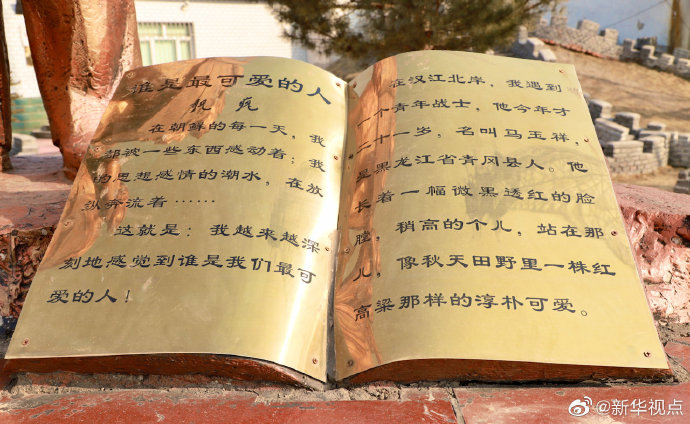 谁是最可爱的人
魏 巍
在朝鲜的每一天，我
都被一些东西感动着；我
的思想感情的潮水，在放
纵奔流着……
这就是：我越来越深
刻地感觉到谁是我们最可
爱的人！
在汉江北岸，我遇到
一个青年战士，他今年才
二十一岁，名叫马玉祥，
是黑龙江省青冈县人。他
长着一幅微黑透红的脸
膛，稍高的个儿，站在那
儿，像秋天田野里一株红
高梁那样的淳朴可爱。
@新华视点